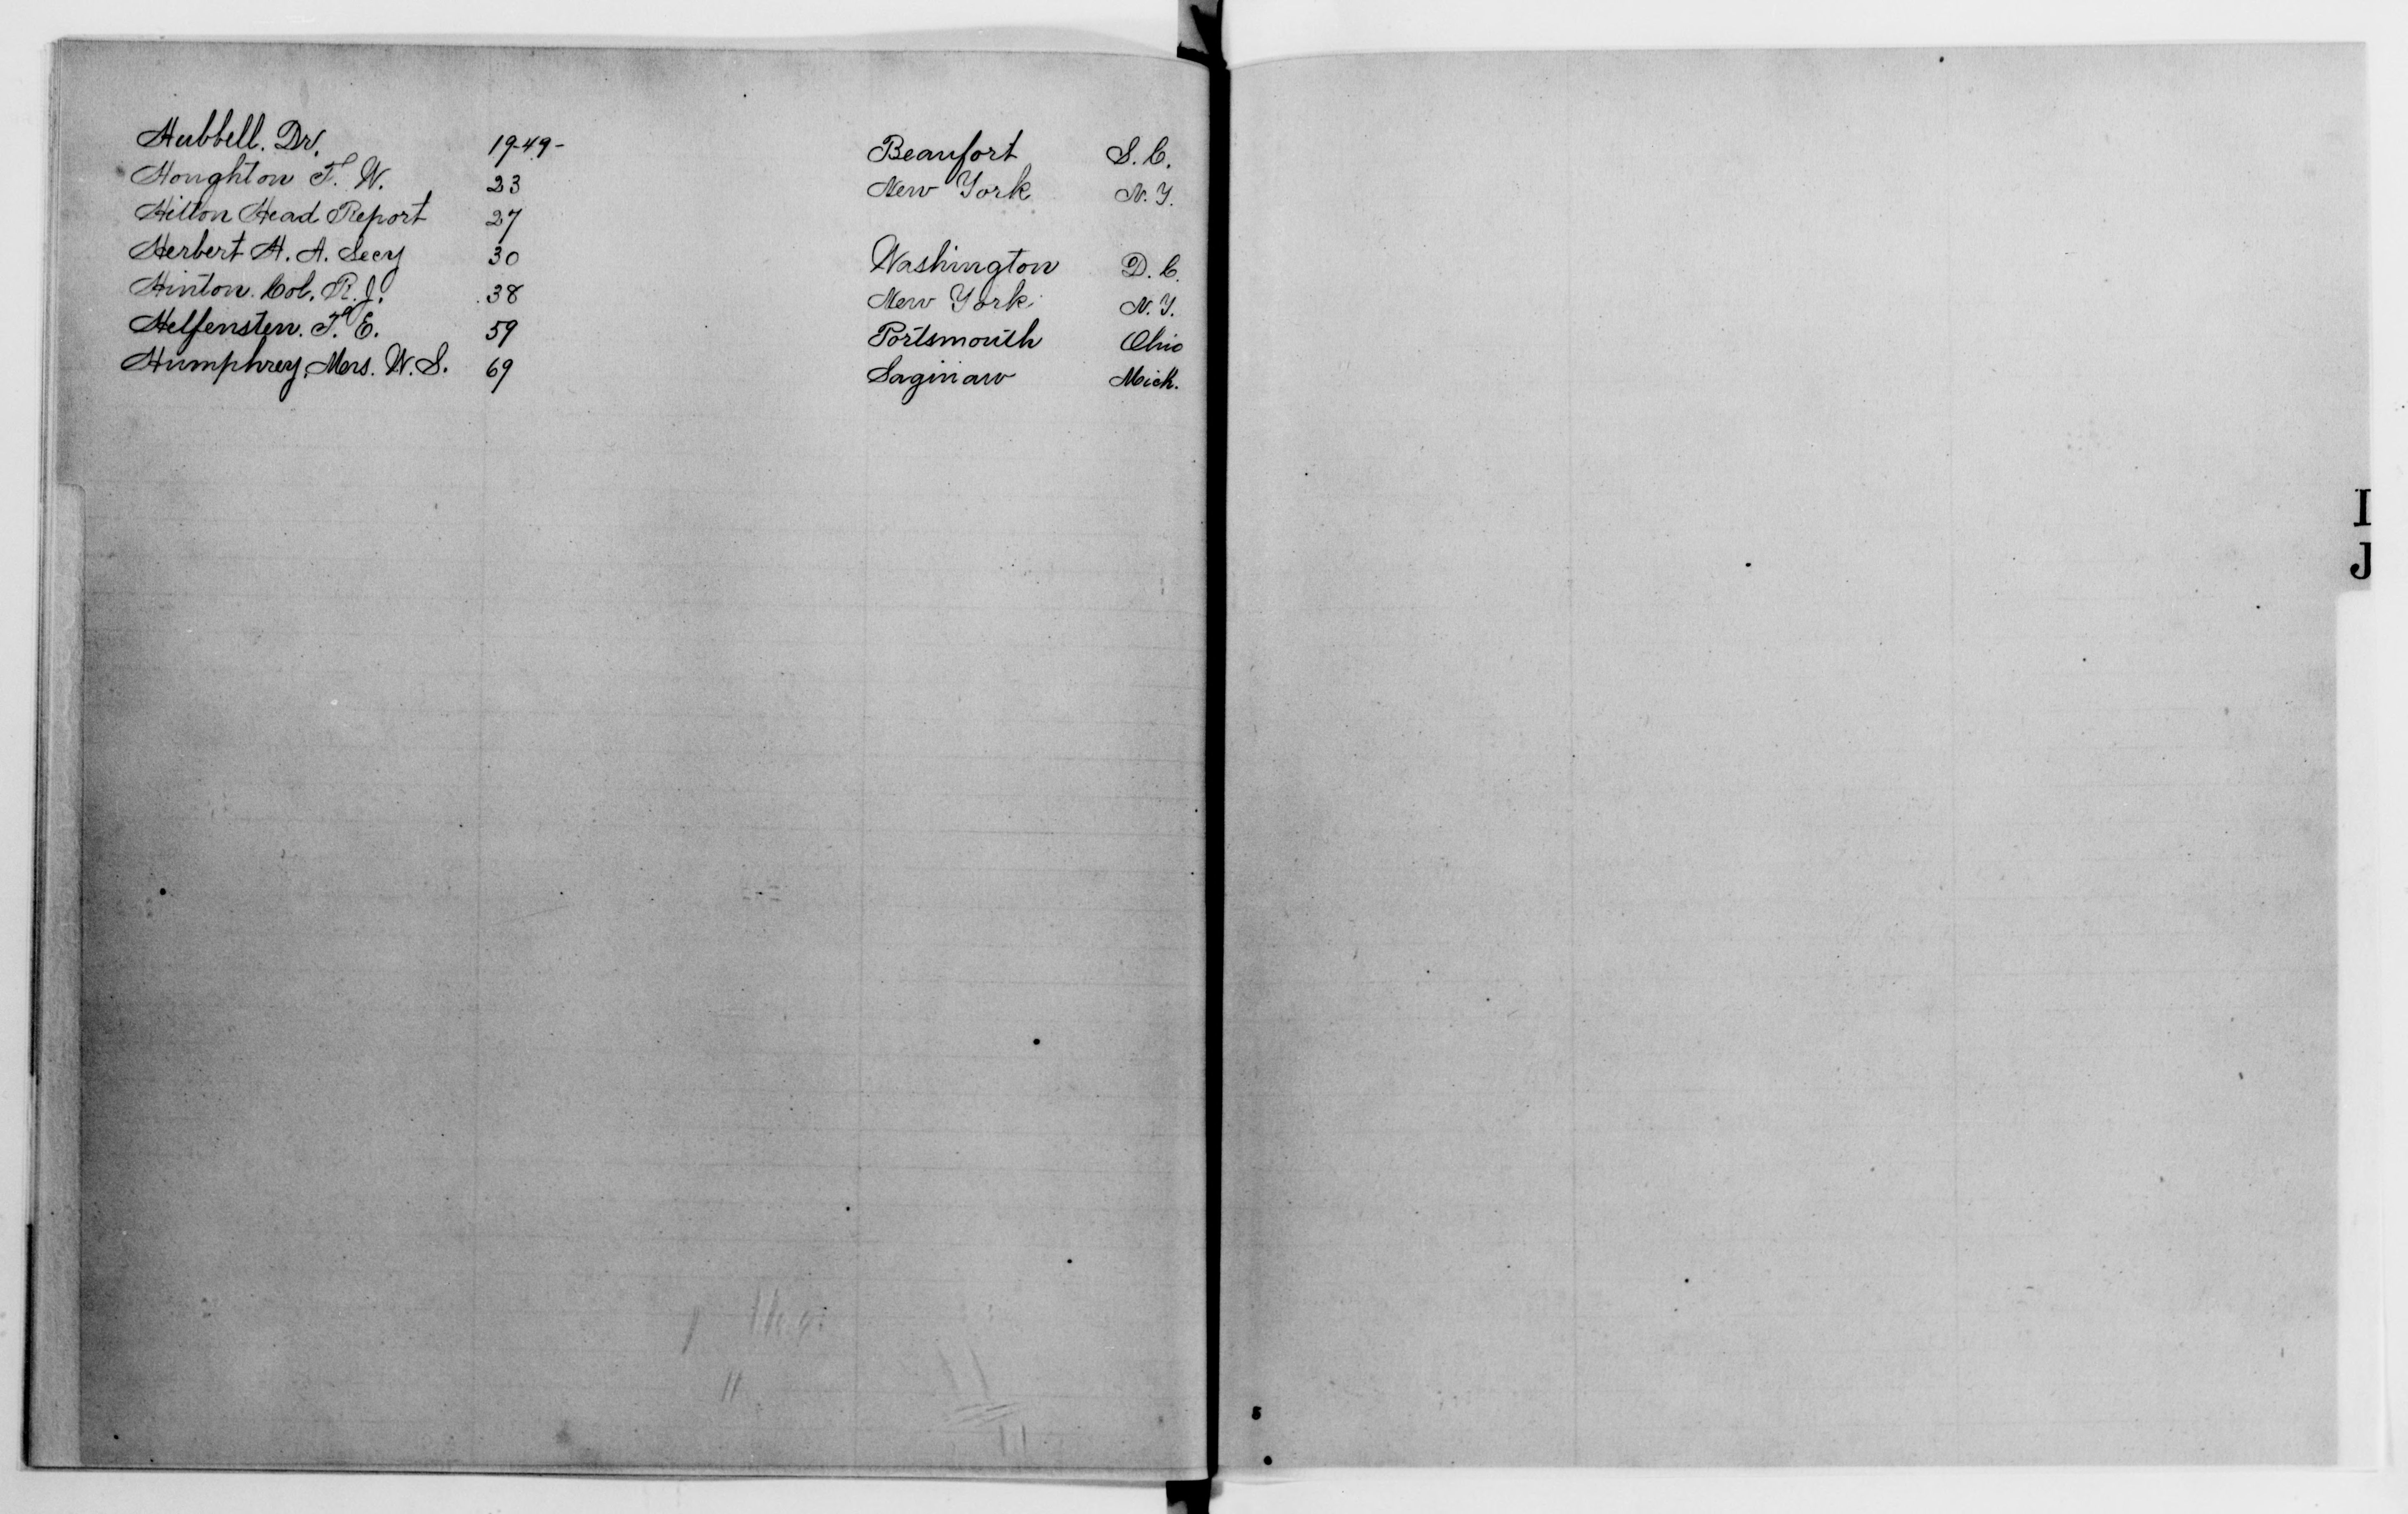 Hubbell. Dr. 19-49- Beaufort S.C.
Houghton F. W. 23 New York N.Y.
Hilton Head Report 27
Herbert H. A. Secy 30 Washington D.C.
Hinton. Col. R.J. 38 New York N.Y.
Helfensten. F. E. 59 Portsmouth Ohio
Humphrey, Mrs. W.S. 69 Saginaw Mich.
I
J